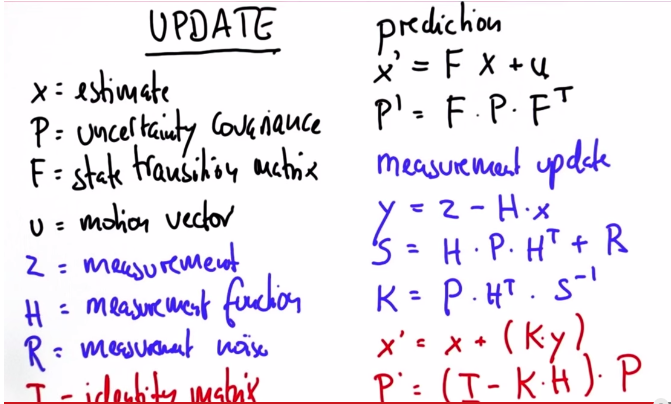 UPDATE
x = estimate
P = uncertainty covariance
F = state transition matrix
u = motion vector
z = measurement
H = measurement function
R = measurement noise
I - identity matrix
prediction
x' = F x + u
P' = F · P · Fᵀ
measurement update
y = z - H · x
S = H · P · Hᵀ + R
K = P · Hᵀ · S⁻¹
x' = x + (K·y)
P' = (I - K·H) · P